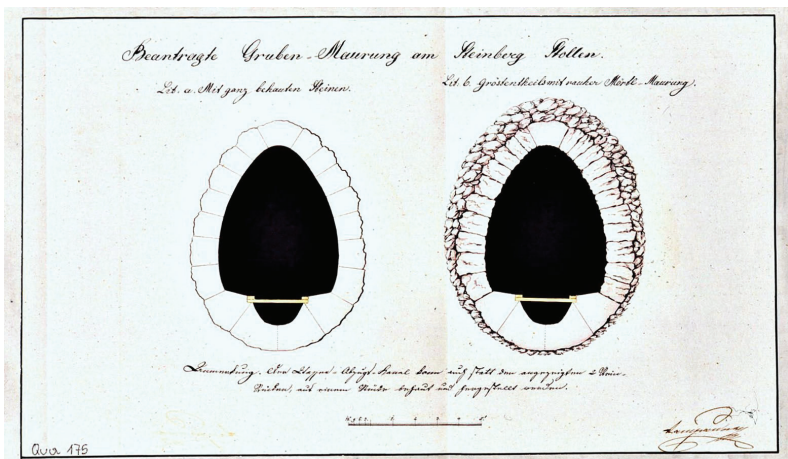 Beantragte Gruben-Maurung am Steinberg Stollen.
Lit. a. Mit ganz behauten Steinen.
Lit. b. Gröstentheils mit rauher Mörtl-Maurung.
Anmerkung. Der Wasser-Abzugs-Kanal kann auch statt den angezeigten 2 Stein-
Stücken, aus einem Stücke behaut und hergestellt werden.
Qua 175